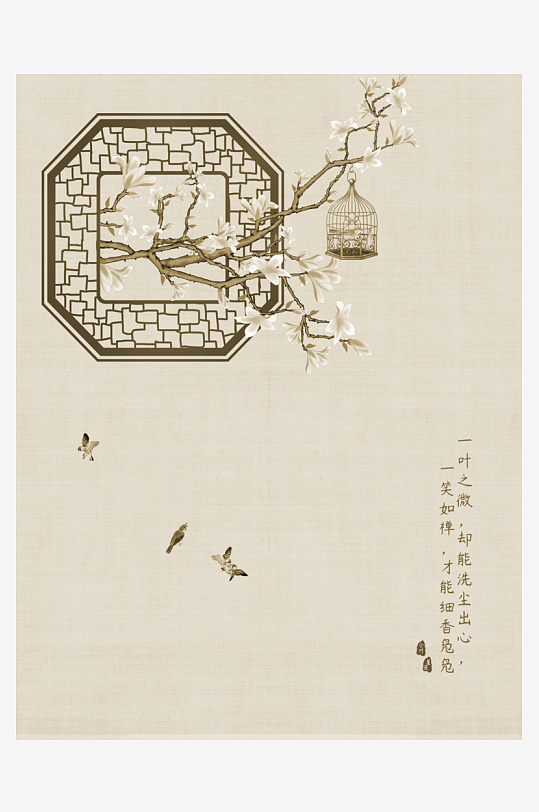 一叶之微，却能洗尘出心，
一笑如禅，才能细香凫凫